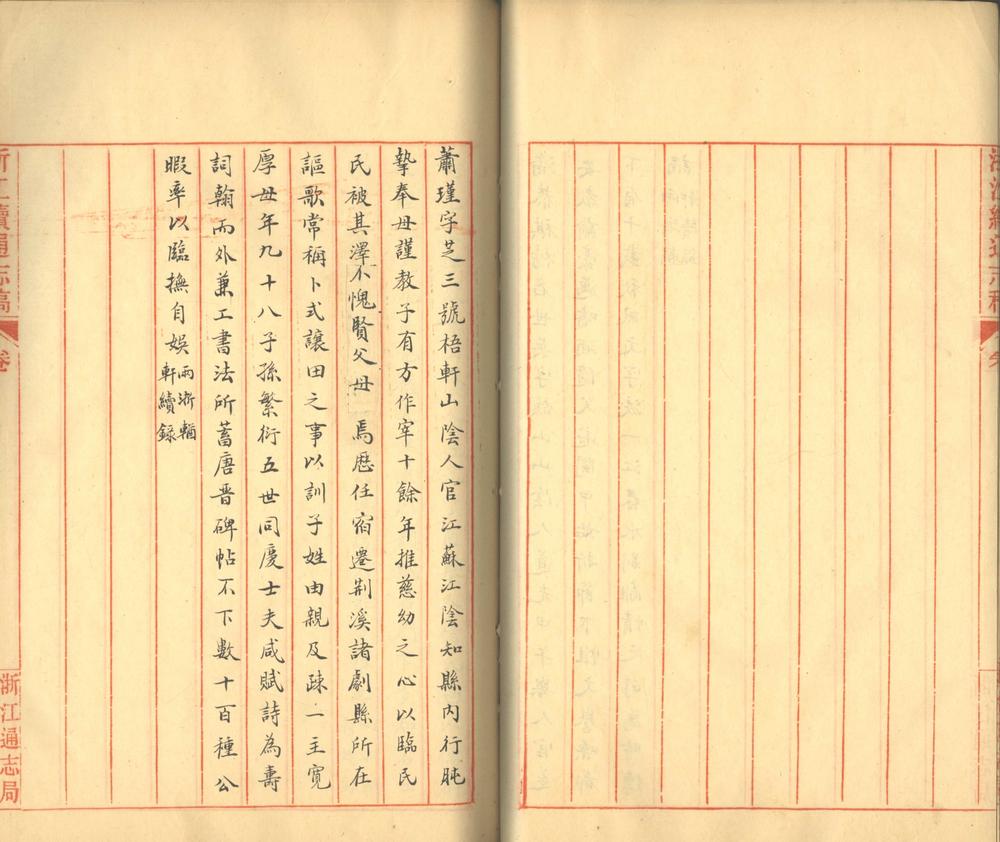 蕭瑾字芝三號梧軒山陰人官江蘇江陰知縣內行肫
摯奉母謹教子有方作宰十餘年推慈幼之心以臨民
民被其澤不愧賢父母焉歷任宿遷荆溪諸劇縣所在
謳歌常稱卜式讓田之事以訓子姓由親及疎一主寬
厚母年九十八子孫繁衍五世同慶士夫咸賦詩為壽
詞翰而外兼工書法所蓄唐晋碑帖不下數十百種公
暇率以臨撫自娛
兩浙輶
軒續錄
浙江續通志稿
卷
浙江通志局